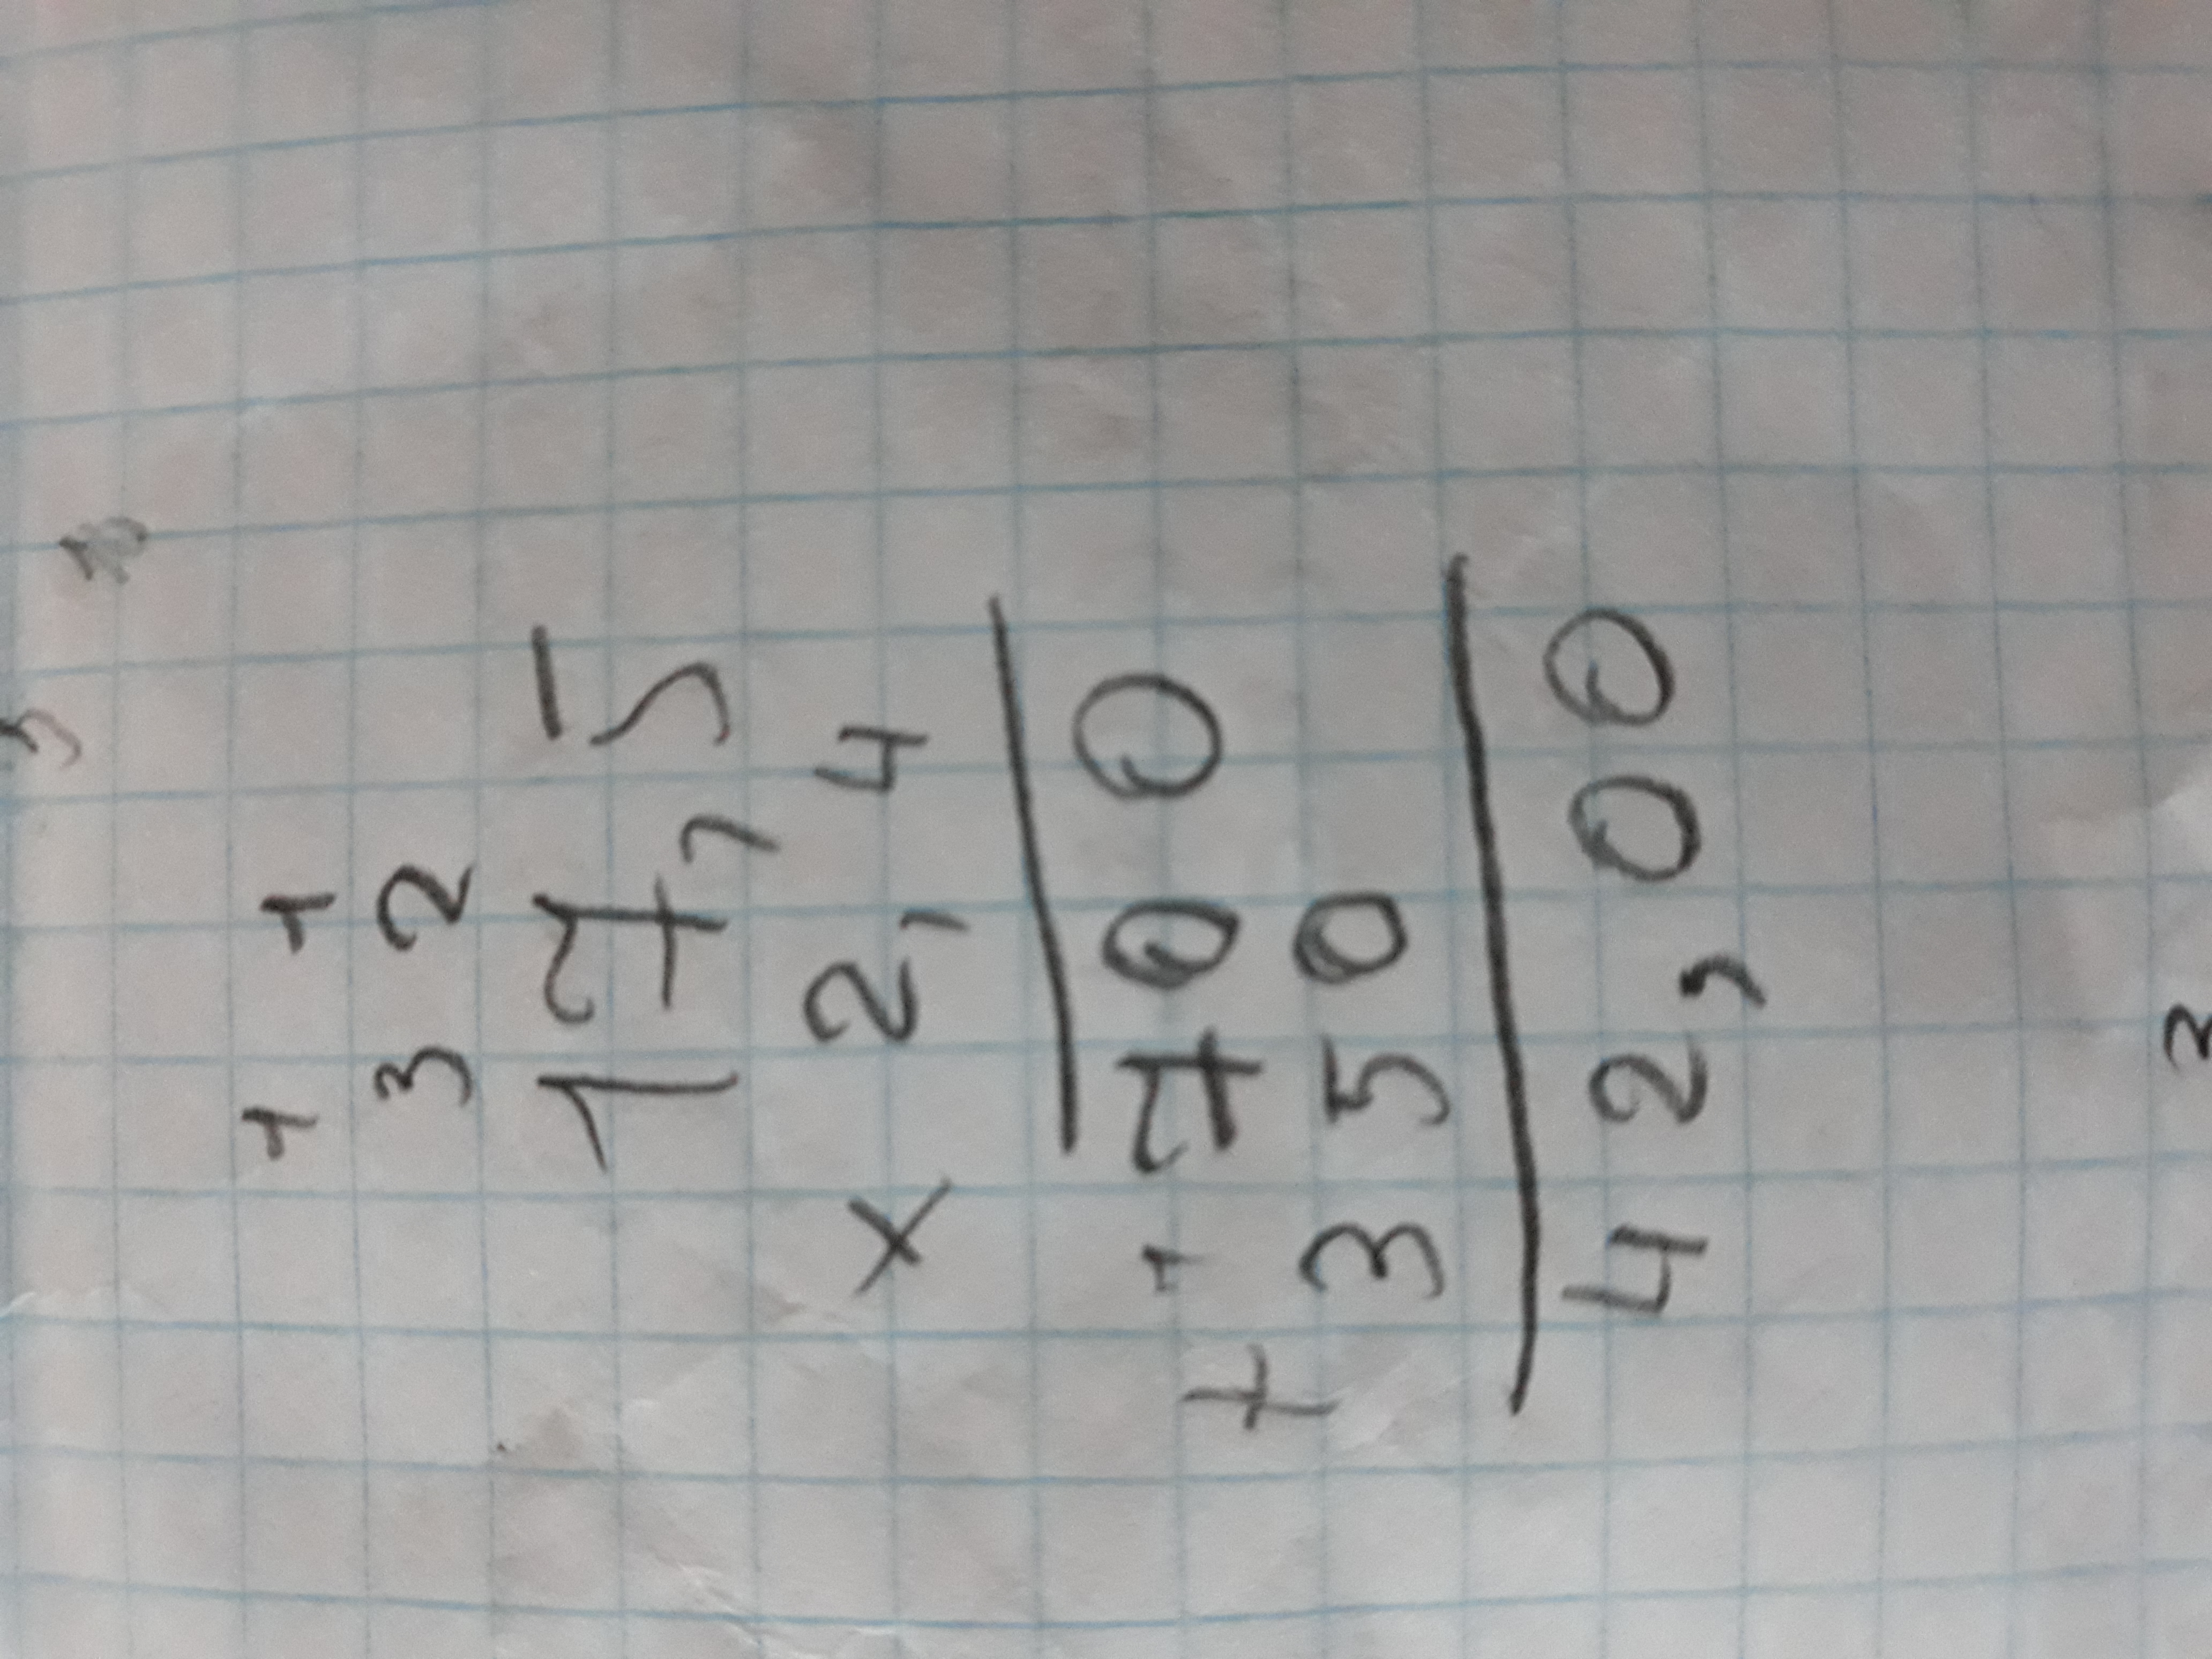 1 1
3 2
17,5
x 2,4
1700
+ 350
42,00